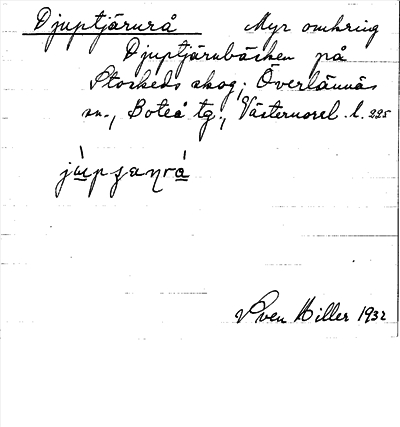 Djuptjärnrå Myr omkring
Djuptjärnbäcken på
Stockeds skog; Överlännäs
sn., Boteå tg., Västernorrl. l. 225
Sven Hiller 1932